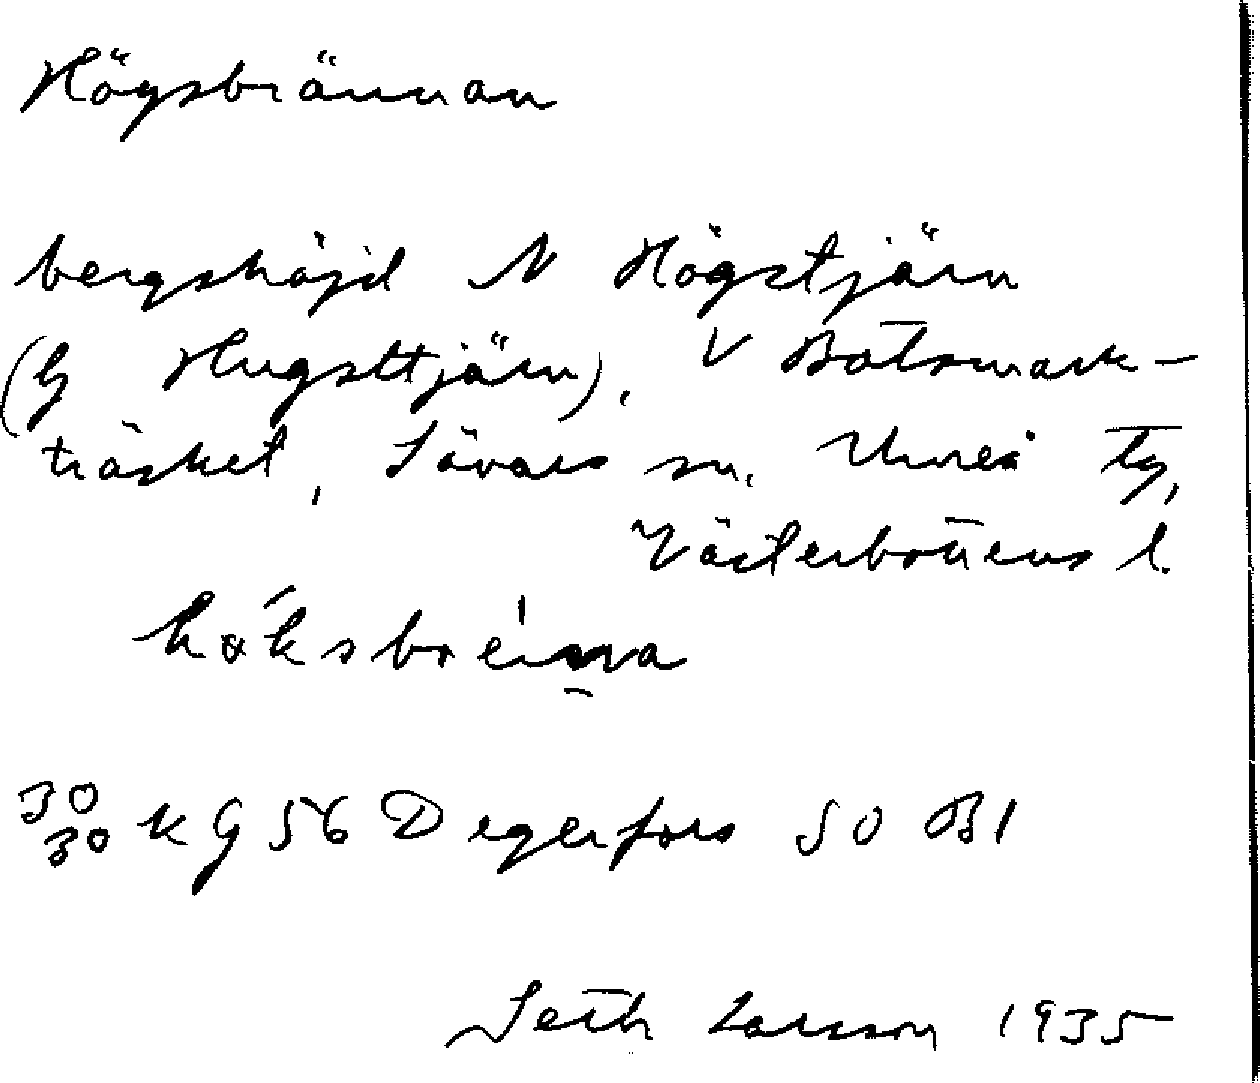 Högsbrännan
bergshöjd N Högstjärn
(G Hugsttjärn), V Botsmark-
träsket, Sävars sn. Umeå tg,
Västerbottens l.
30
30 K G 56 Degerfors SO Bl
Seth Larsson 1935